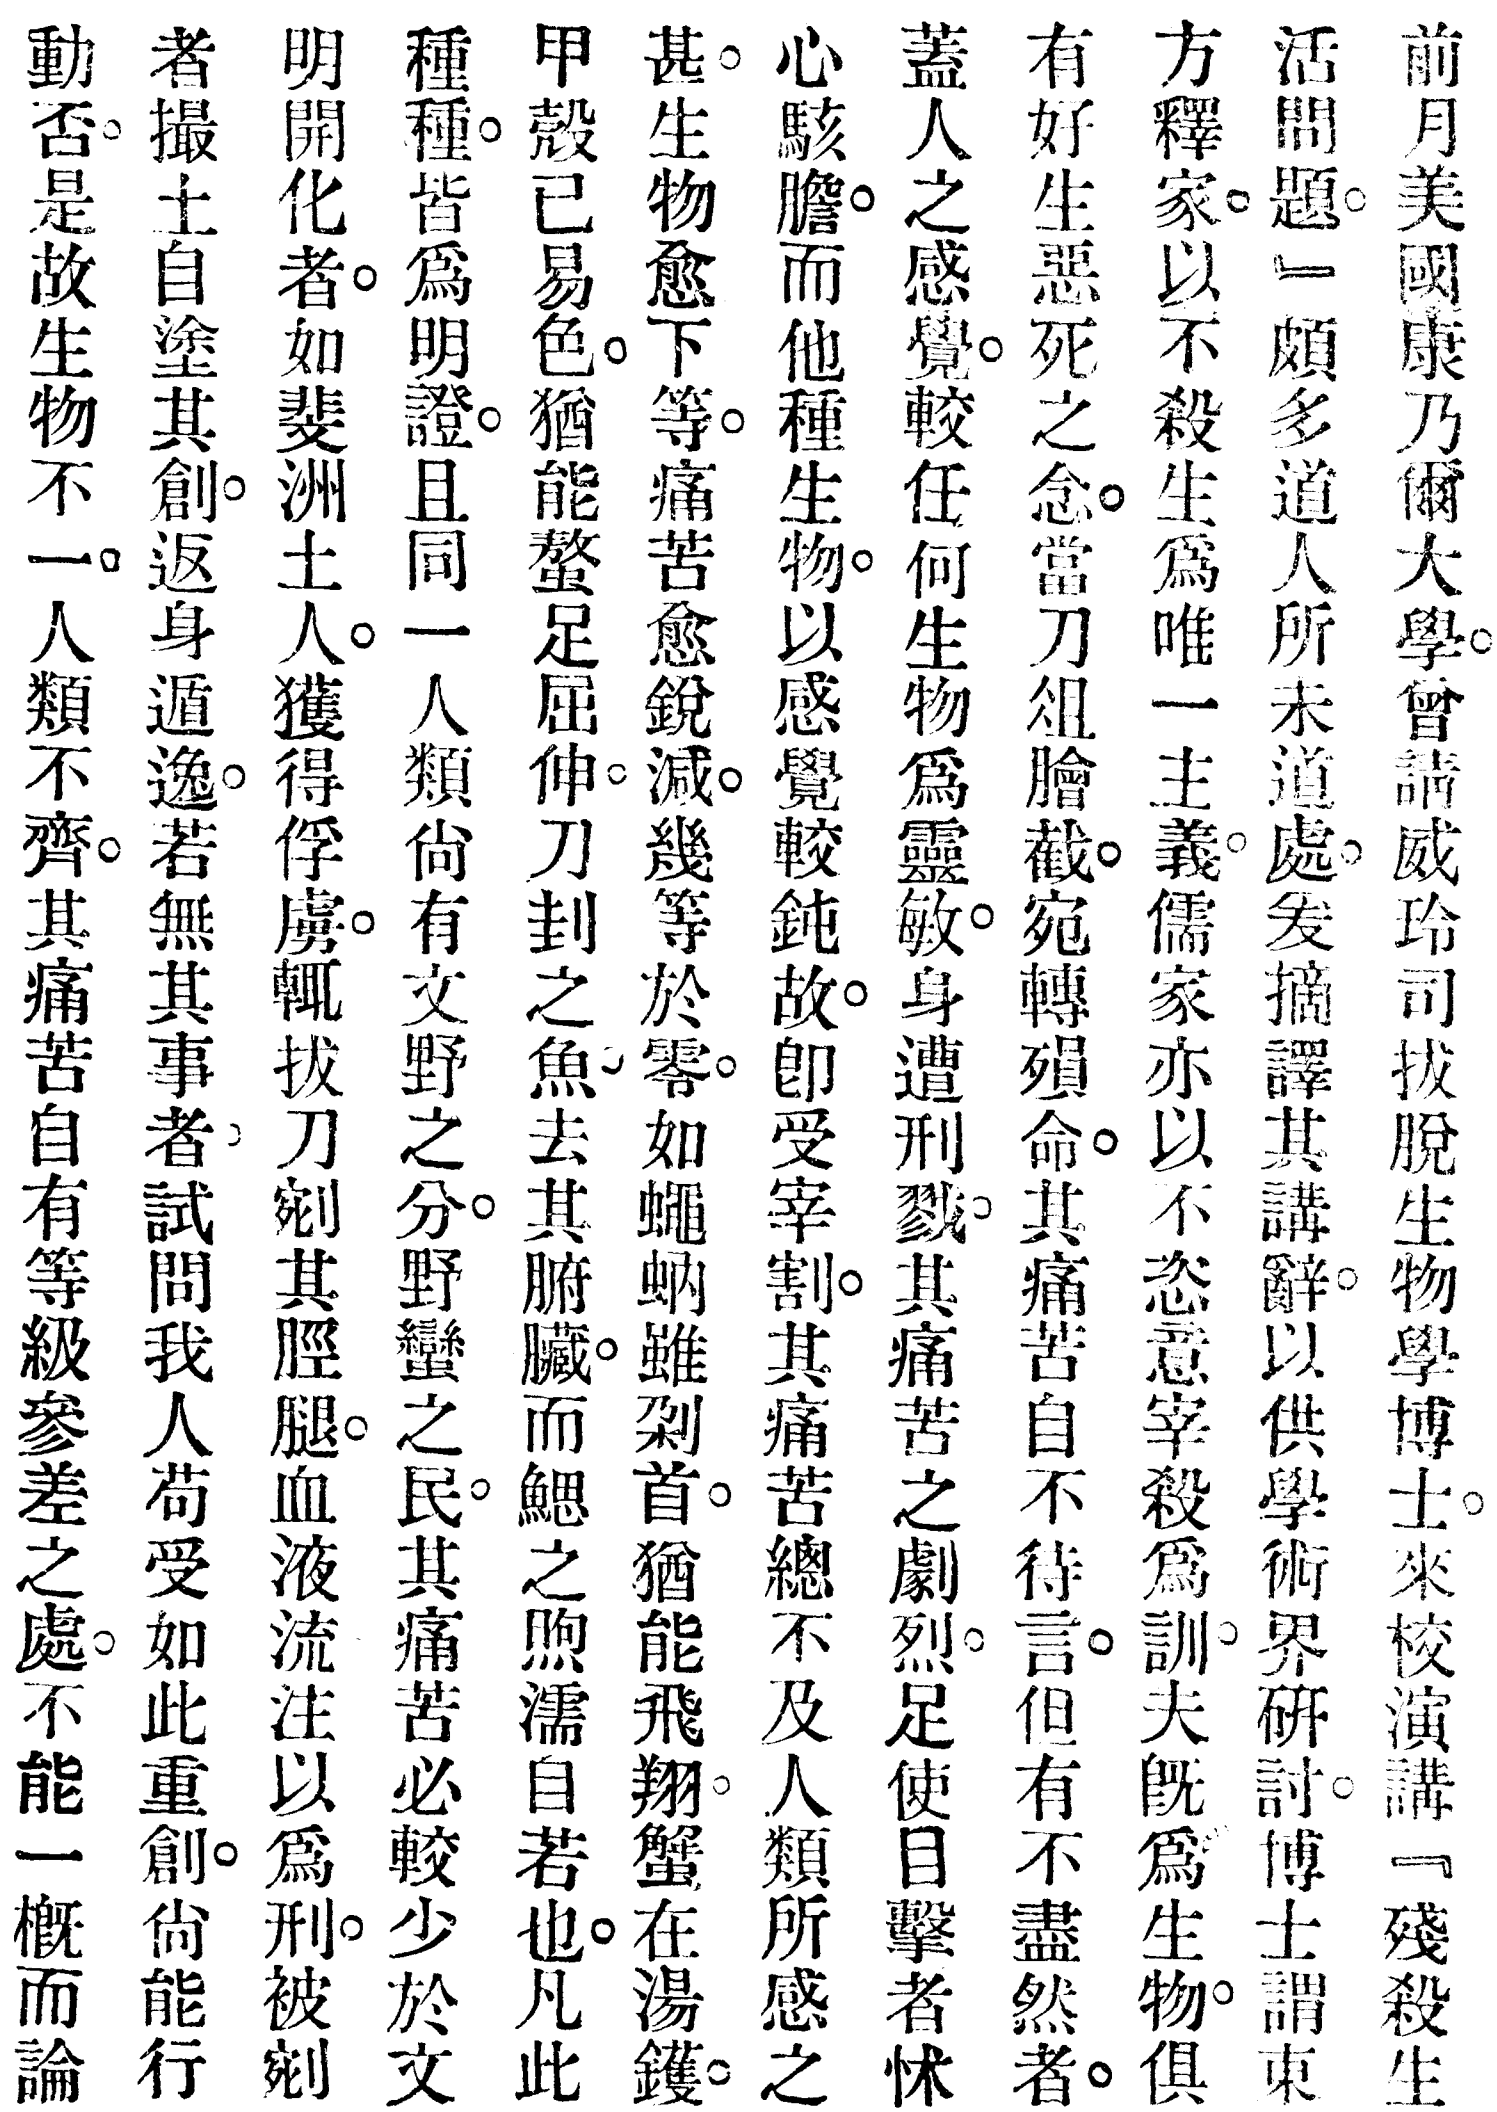 前月美國康乃爾大學。曾請威玲司拔脫生物學博士。來校演講『殘殺生
活問題。』頗多道人所未道處。爰摘譯其講辭。以供學術界研討。博士謂東
方釋家。以不殺生爲唯一主義。儒家亦以不恣意宰殺爲訓。夫既爲生物。俱
有好生惡死之念。當刀俎膾截。宛轉殞命。其痛苦自不待言。但有不盡然者。
蓋人之感覺。較任何生物爲靈敏。身遭刑戮。其痛苦之劇烈。足使目擊者怵
心駭膽。而他種生物。以感覺較鈍故。卽受宰割。其痛苦總不及人類所感之
甚。生物愈下等。痛苦愈銳減。幾等於零。如蠅蚋雖剁首。猶能飛翔。蟹在湯鑊。
甲殼已易色。猶能螯足屈伸。刀刲之魚。去其腑臟。而鰓之煦濡自若也。凡此
種種。皆爲明證。且同一人類尙有文野之分。野蠻之民。其痛苦必較少於文
明開化者。如斐洲土人。獲得俘虜。輒拔刀剜其脛腿。血液流注以爲刑。被剜
者撮土自塗其創。返身遁逸。若無其事者。試問我人苟受如此重創。尙能行
動否。是故生物不一。人類不齊。其痛苦自有等級參差之處。不能一概而論